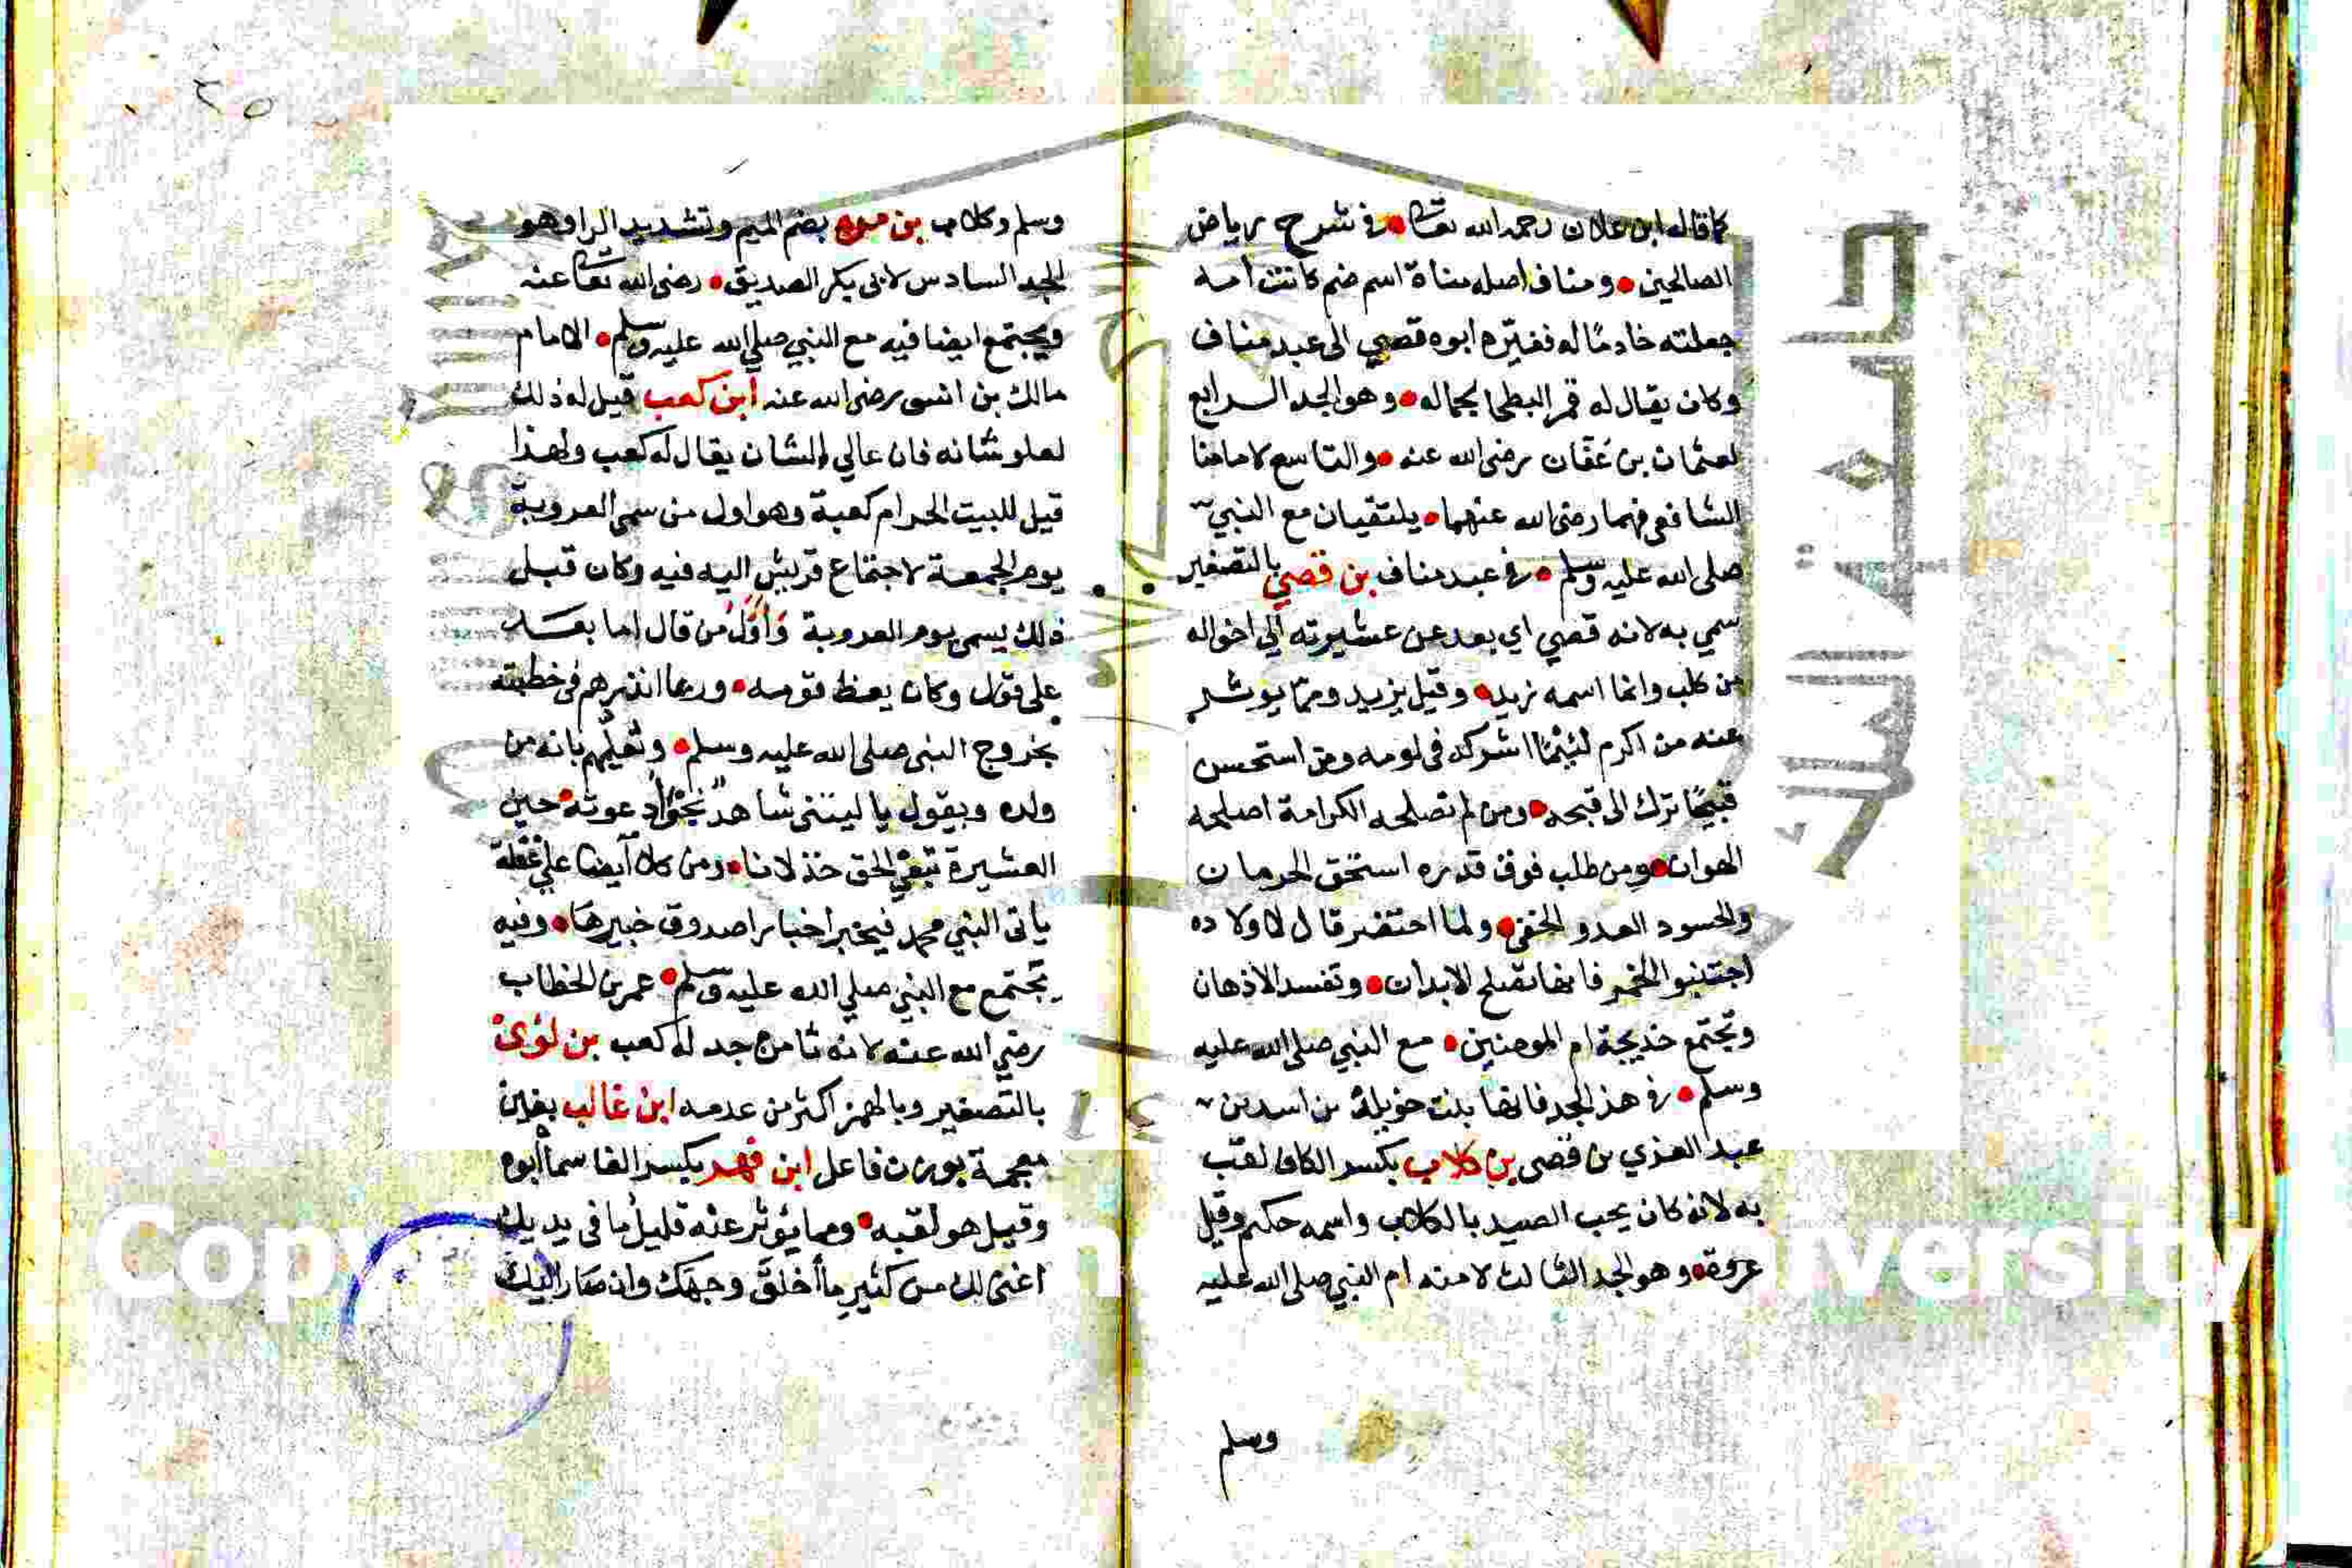 كما قاله ابن علان رحمه الله تعالى في شرح رياض
الصالحين ومناف اصله مناة اسم صنم كانت امه
جعلته خادمًا له فغيّره ابوه قصي الى عبد مناف
وكان يقال له قمر البطحا لجماله وهو الجد الرابع
لعثمان بن عفان رضى الله عنه والتاسع لامامنا
الشافعى فهما رضى الله عنهما يلتقيان مع النبي
صلى الله عليه وسلم في عبد مناف بن قصي بالتصغير
سمي به لانه قصي اي بعد عن عشيرته الي اخواله
من كلب وانما اسمه زيد وقيل يزيد ومما يوثر
عنه من اكرم لئيمًا اشركه فى لومه ومن استحسن
قبيحًا ترك الى قبحه ومن لم تصلحه الكرامة اصلحه
الهوان ومن طلب فوق قدره استحق الحرمان
والحسود العدو الخفى ولما احتضر قال لاولاده
اجتنبوا الخمر فانها تصلح الابدان وتفسد الاذهان
وتجتمع خديجة ام المومنين مع النبي صلى الله عليه
وسلم في هذ الجد فانها بنت خويلد بن اسد بن
عبد العزي بن قصى بن كلاب بكسر الكاف لقب
به لانه كان يحب الصيد بالكلاب واسمه حكيم وقيل
عروة وهو الجد الثالث لامنه ام النبي صلى الله عليه
وسلم
٢٥
وسلم وكلاب بن مره بضم الميم وتشديد الرا وهو
الجد السادس لابى بكر الصديق رضى الله تعالى عنه
ويجتمع ايضا فيه مع النبي صلي الله عليه وسلم الامام
مالك بن انس رضى الله عنه ابن كعب قيل له ذلك
لعلو شانه فان عالي الشان يقال له كعب ولهذا
قيل للبيت الحرام كعبة وهو اول من سمى العروبة
يوم الجمعة لاجتماع قريش اليه فيه وكان قبل
ذلك يسمى يوم العروبة وَأوّلُ من قال اما بعد
على قول وكان يعظ قومه وربما انذرهم فى خطبته
بخروج النبى صلى الله عليه وسلم ويُعلّمهم بانه من
ولده ويقول يا ليتنى شاهدٌ نجْوَا دعوته حين
العشيرة تبغي الحق خذلانا ومن كلامه ايضا على غفلة
ياتى النبي محمد فيخبر اخبارا صدوق خبيرها وفيه
يجتمع مع النبي صلي الله عليه وسلم عمر بن الخطاب
رضي الله عنه لانه ثامن جد له كعب بن لؤى
بالتصغير وبالهمز اكثر من عدمه ابن غالب بغين
معجمة بوزن فاعل ابن فهر بكسر الفا سماه أبوه
وقيل هو لقبه ومما يؤثر عنه قليل ما فى يديك
اغنى لك من كثير ما أخلقَ وجهَك وان صَار اليك
Copy
iversity